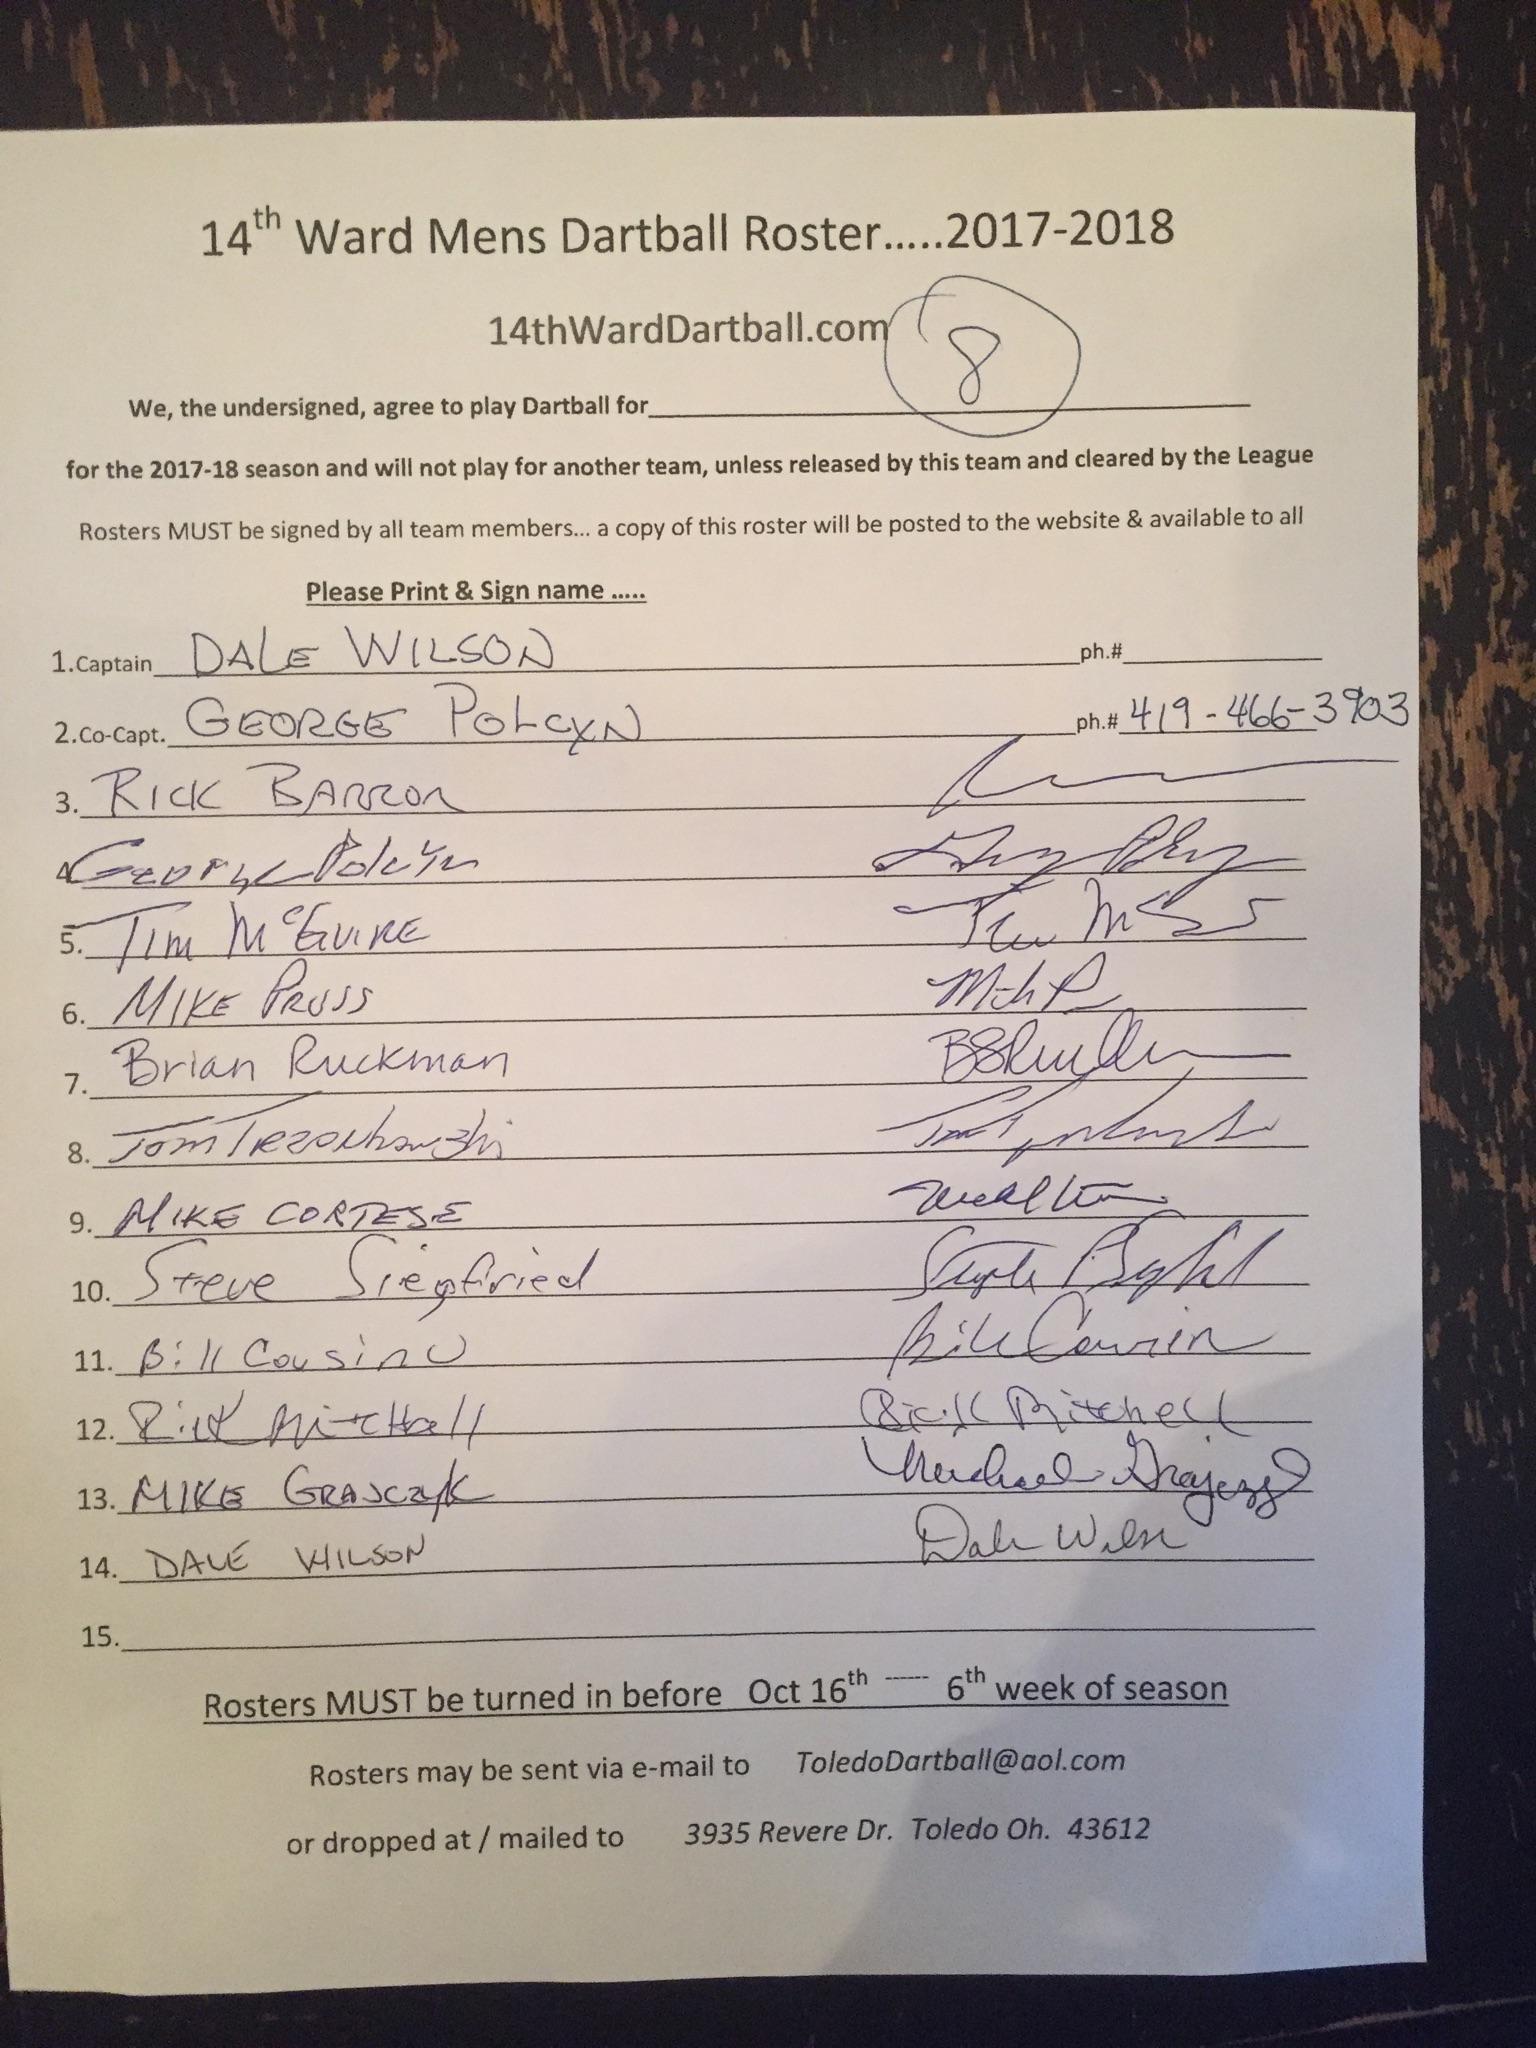 14th Ward Mens Dartball Roster.....2017-2018
14thWardDartball.com
8
We, the undersigned, agree to play Dartball for
for the 2017-18 season and will not play for another team, unless released by this team and cleared by the League
Rosters MUST be signed by all team members... a copy of this roster will be posted to the website & available to all
Please Print & Sign name .....
1.Captain DALE WILSON ph.#
2.Co-Capt. GEORGE POLCYN ph.# 419-466-3903
3. RICK BARRON
4. George Polcyn
5. TIM McGUIRE
6. MIKE PRUSS
7. Brian Ruckman
8. Tom
9. MIKE CORTESE
10. Steve Siegfried
11. Bill Cousino Bill Cousino
12. Rick Mitchell Rick Mitchell
13. MIKE GRAJCZYK Michael
14. DALE WILSON Dale Wilson
15.
Rosters MUST be turned in before Oct 16th ------ 6th week of season
Rosters may be sent via e-mail to ToledoDartball@aol.com
or dropped at / mailed to 3935 Revere Dr. Toledo Oh. 43612